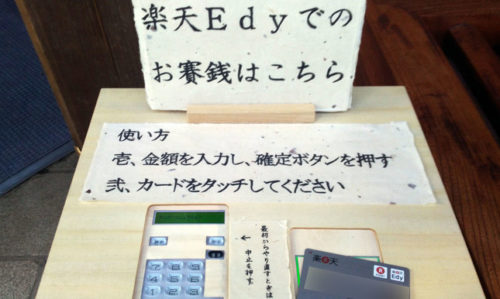 楽天Edyでの
お賽銭はこちら
使い方
壱、金額を入力し、確定ボタンを押す
弐、カードをタッチしてください
最初からやり直すときは
← 中止を押す
楽天
Edy